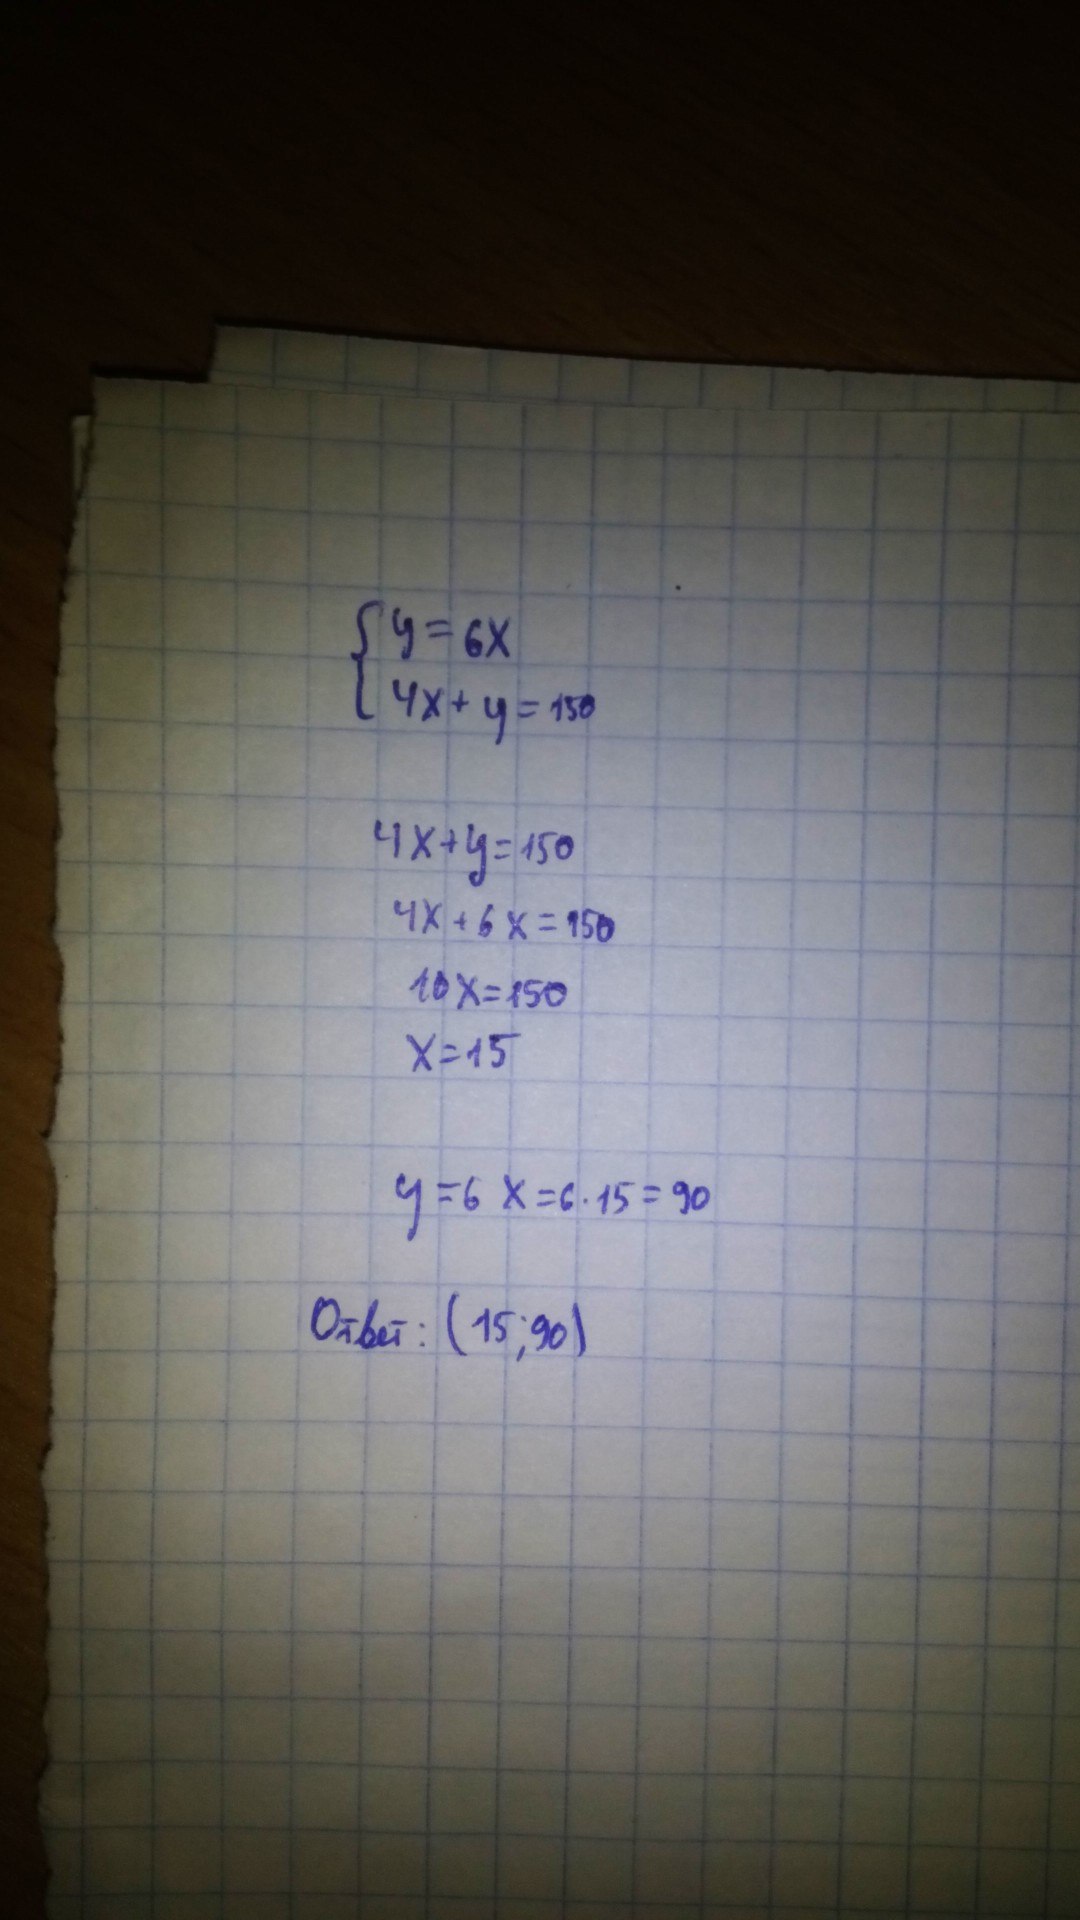 { y = 6x
4x + y = 150
4x + y = 150
4x + 6x = 150
10x = 150
x = 15
y = 6x = 6 · 15 = 90
Ответ: (15; 90)